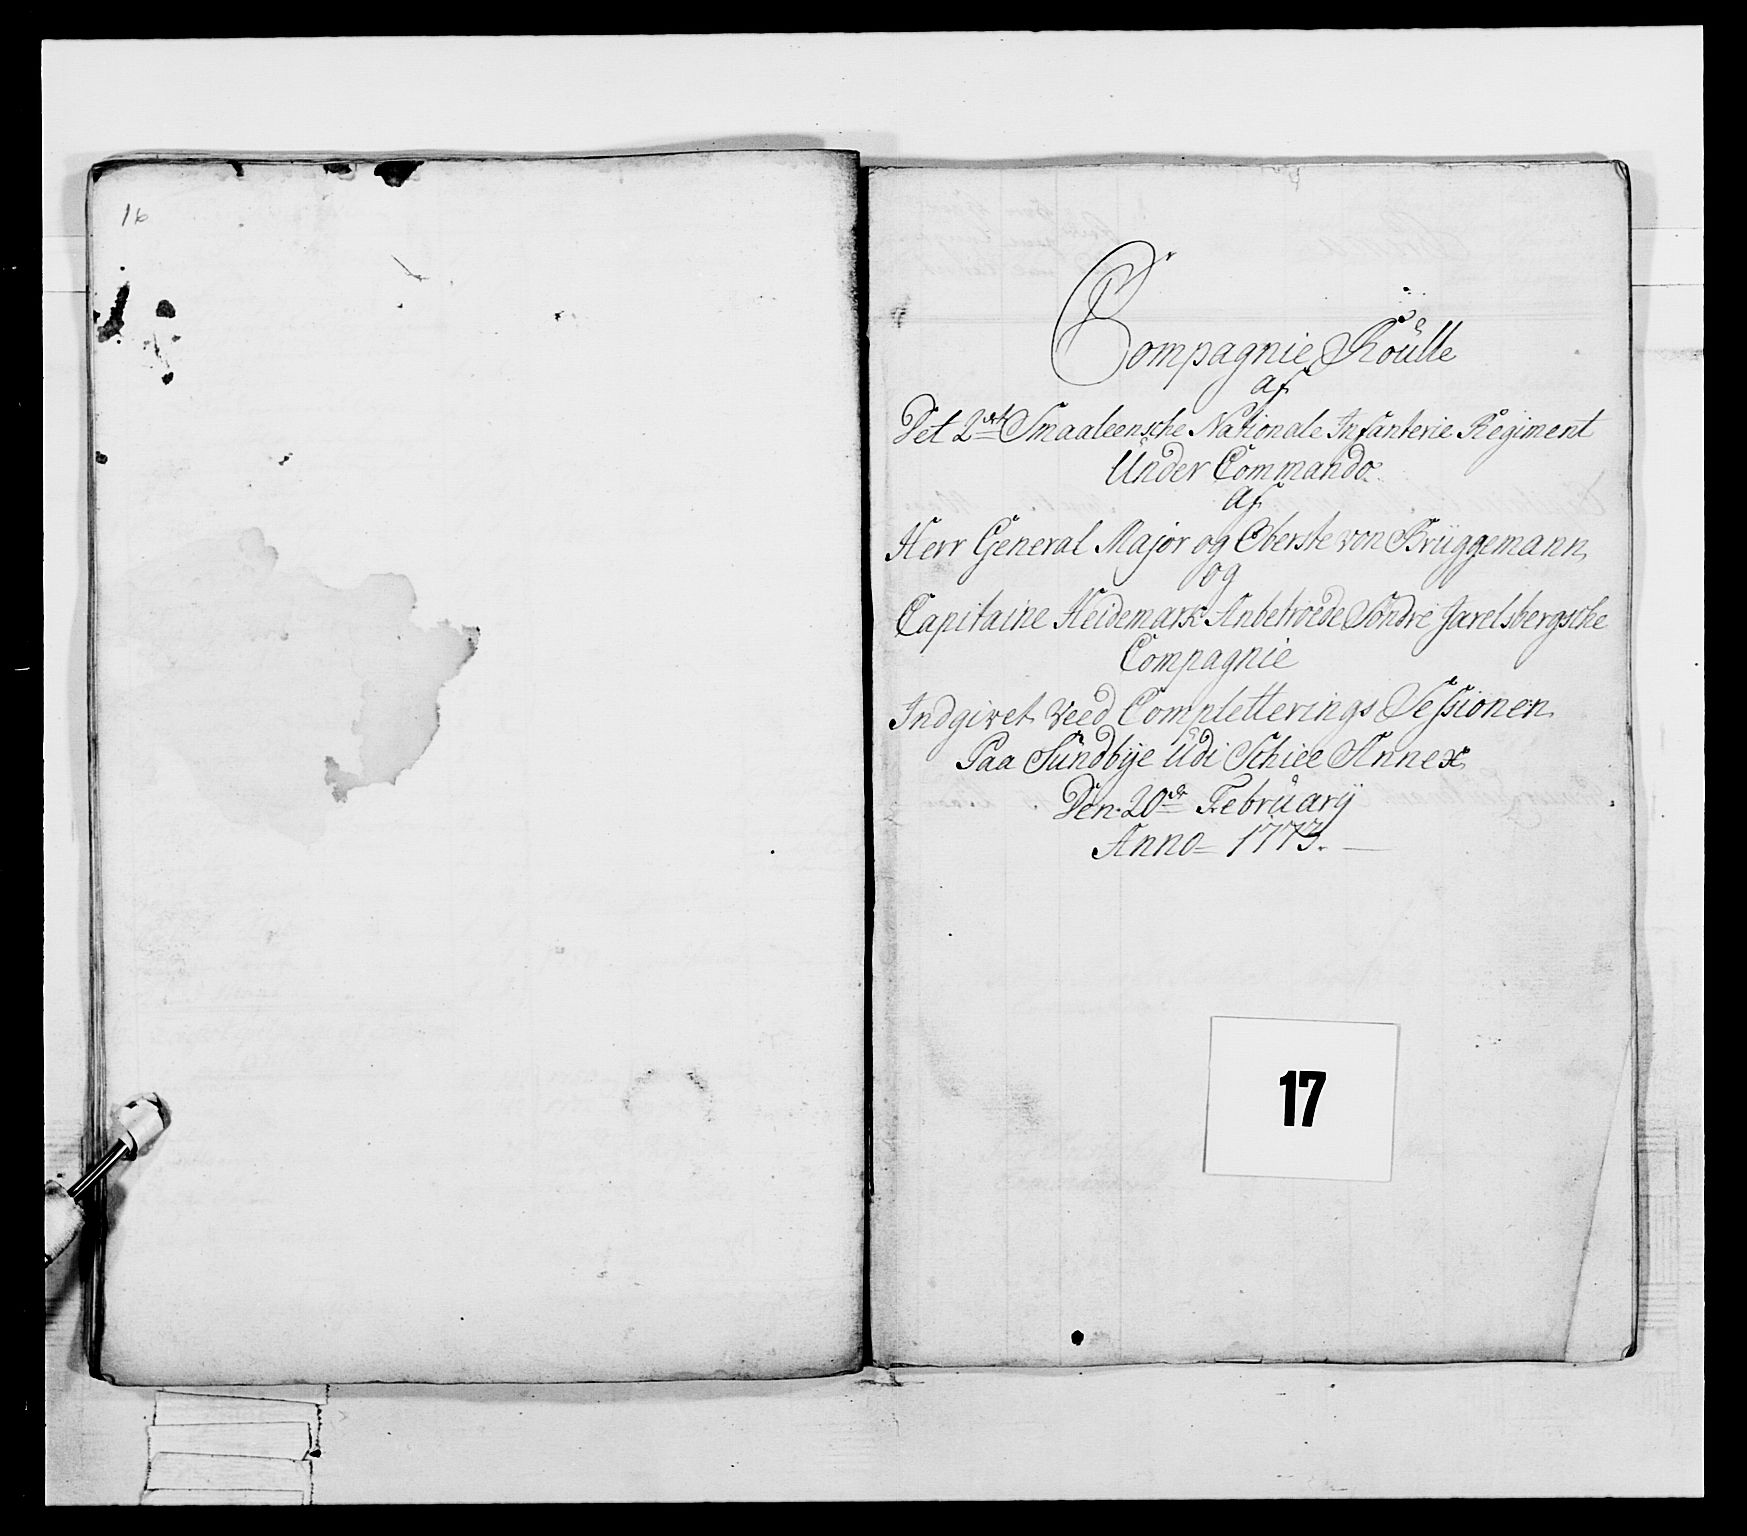 16
Compagnie Roulle
af
Det 2det Smaaleensche Nationale Infanterie Regiment
Under Commando
af
Herr General Major og Oberste von Brüggemann,
og
Capitaine Heidemark Anbetroede Söndre Jarelsbergsche
Compagnie
Indgivet veed Completterings Sessionen
Paa Sundbÿe Udi Schiee Annex
Den 20de Februarÿ
Anno 1773.
17